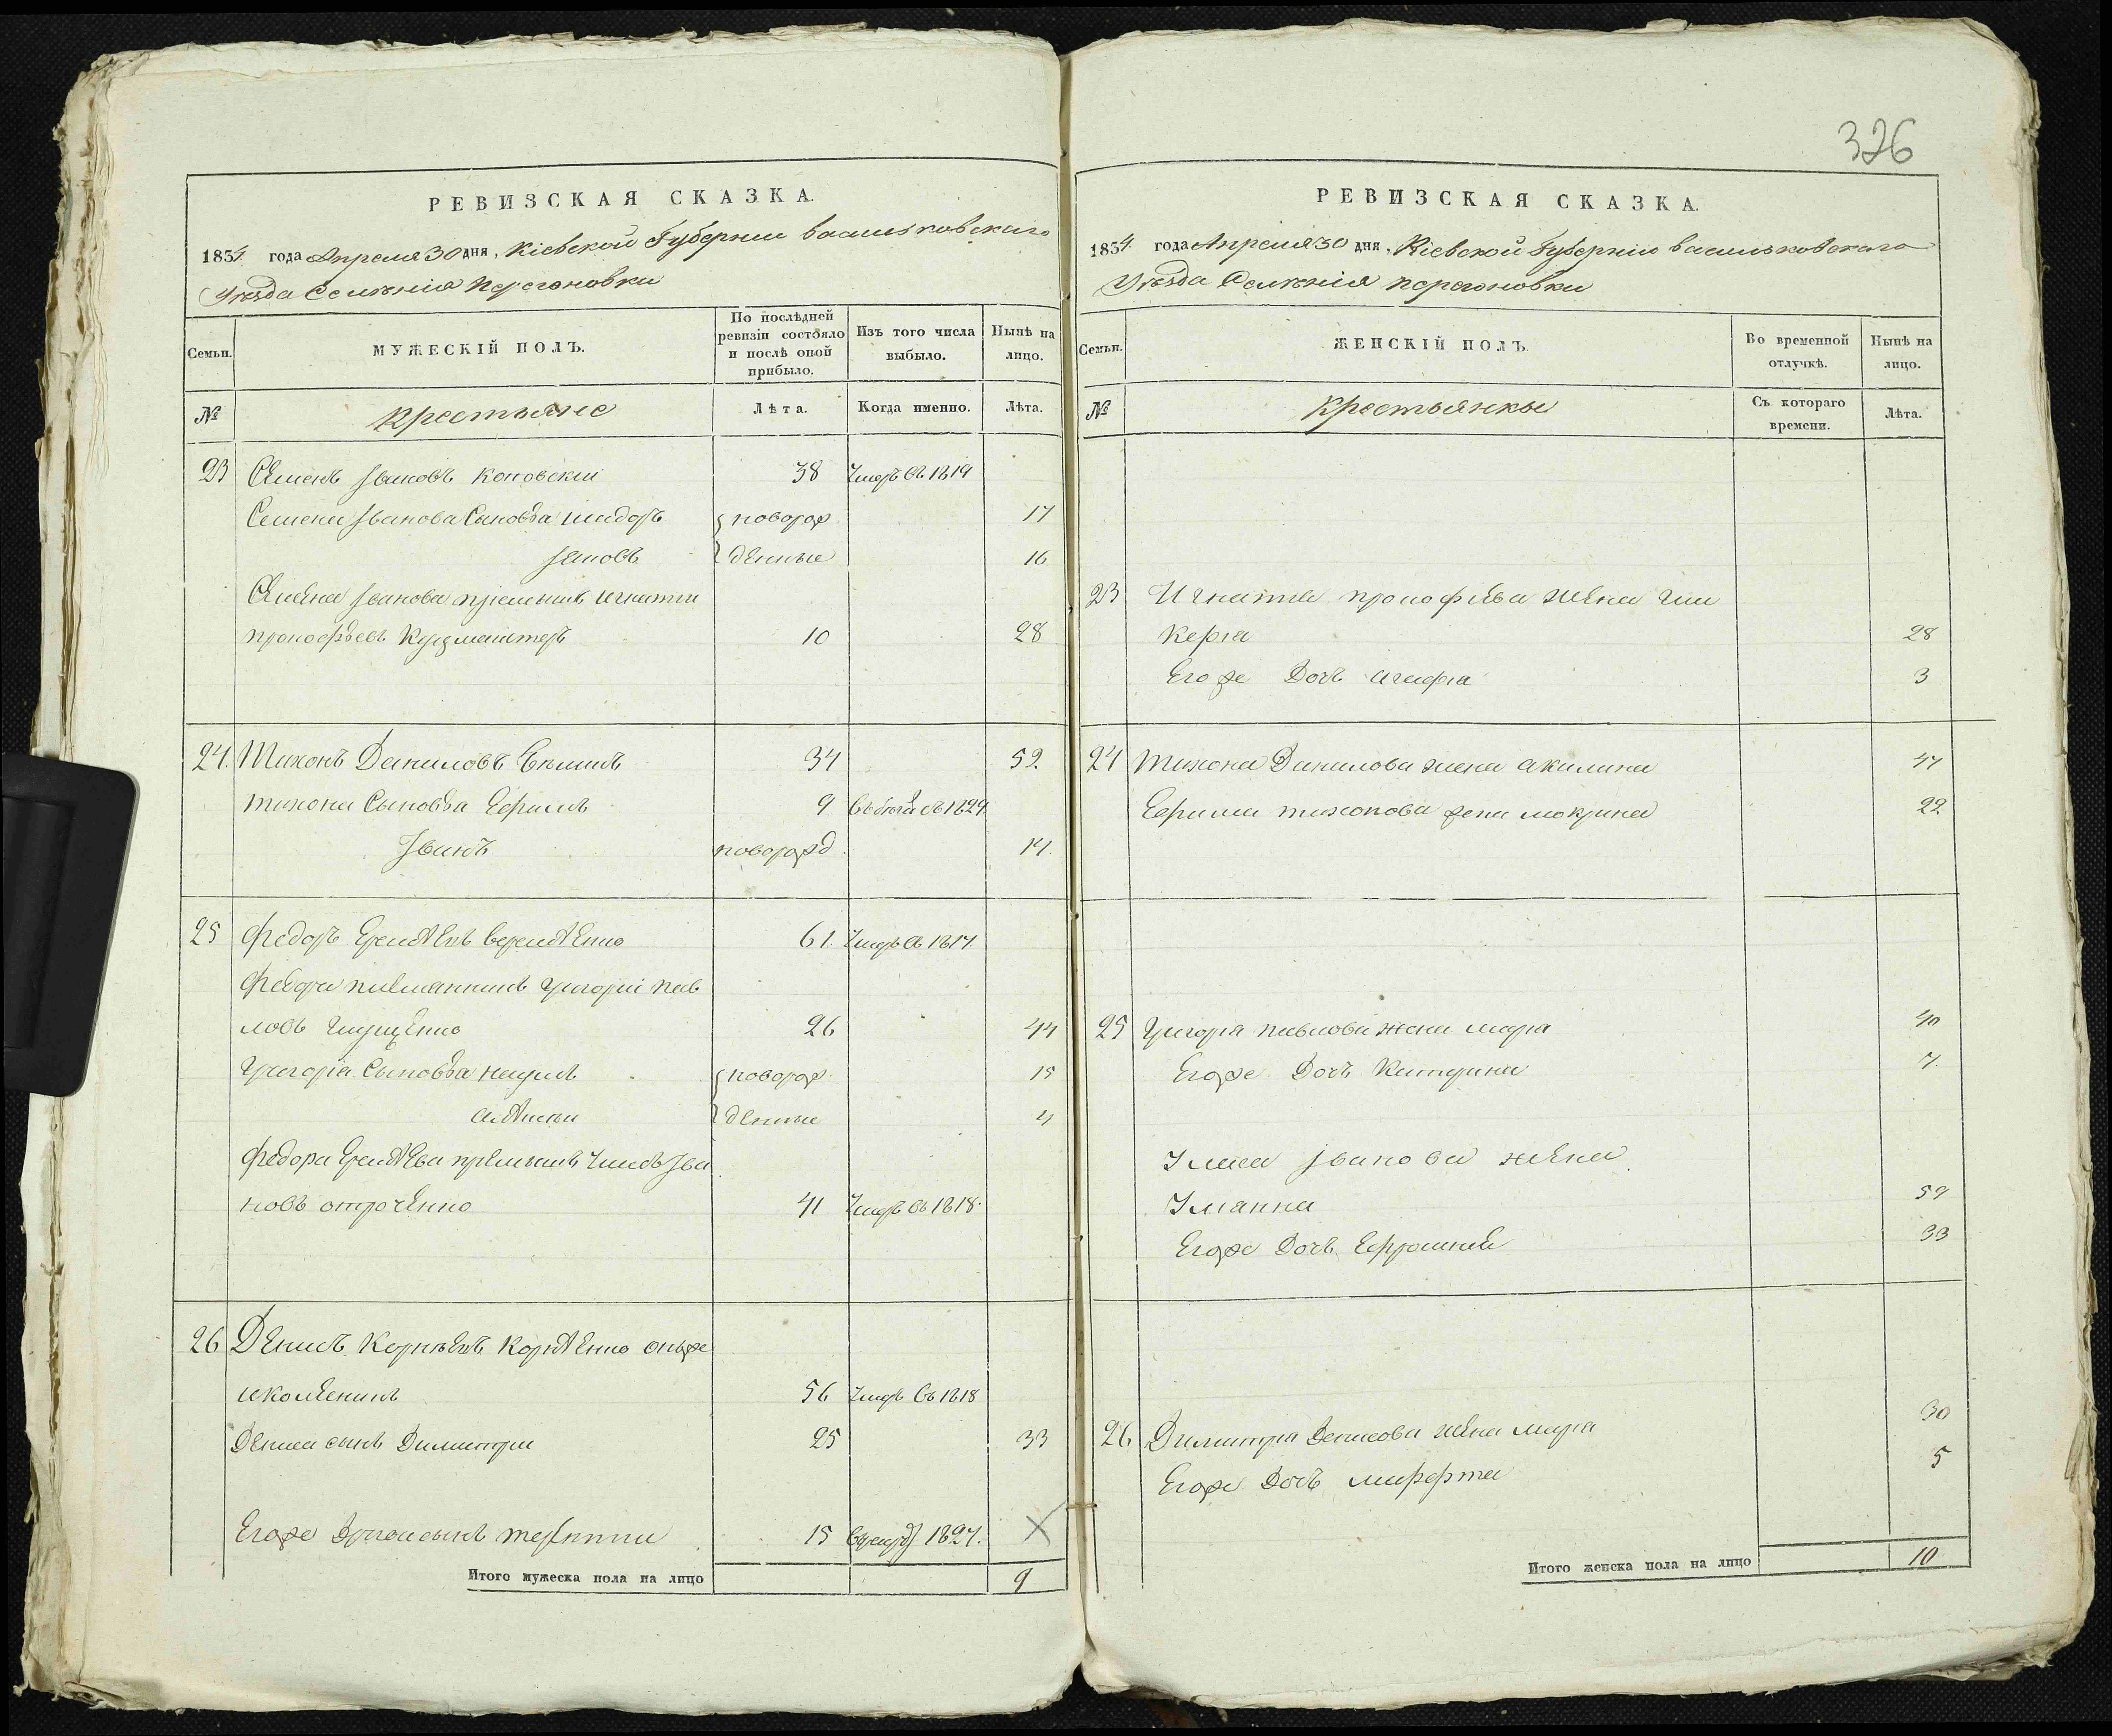 326
РЕВИЗСКАЯ СКАЗКА.
1834 года Апреля 30 дня, Кіевской Губерніи васильковского
Уезда Селенія Перегоновки
Семьи.
МУЖЕСКІЙ ПОЛЪ.
По послѣдней ревизіи состояло и послѣ оной прибыло.
Изъ того числа выбыло.
Нынѣ на лицо.
№
Крестьяне
Лѣта.
Когда именно.
Лѣта.
23 Семенъ Ивановъ 38 Умеръ въ 1819
Семена Иванова Сыновья новорож 17
Яковъ денные 16
Семена Иванова Игнатій
прокофьевъ 10 28
24. Тихонъ Даниловъ 34 52
тихона Сыновья Ефимъ 9 1829
Иванъ новорожд. 14.
25 Федоръ 61. Умеръ въ 1817.
Федора Григорій Пав
ловъ 26 44
Григорія Сыновья Наумъ новорож 15
Алексѣй денные 4
Федора Ива
новъ 41 Умеръ въ 1818.
26 Денисъ Корнѣевъ
56 Умеръ въ 1818
Дениса сынъ Димитри 25 33
Егоже Другой сынъ терентии 15 в рекруты 1827.
Итого мужеска пола на лицо 9
РЕВИЗСКАЯ СКАЗКА.
1834. года Апреля 30 дня, Кіевской Губерніи васильковского
Уѣзда Селенія перегоновки
Семьи.
ЖЕНСКІЙ ПОЛЪ.
Во временной отлучкѣ.
Нынѣ на лицо.
№
Крестьянки
Съ котораго времени.
Лѣта.
23 Игнатія прокофіева жена Гли
керіа 28
Его же Дочъ 3
24 Тихона Данилова жена акилина 47
Ефима тихонова жена мокрина 22
25 Григорія павлова жена марія 40
Егоже Дочъ Катерина 7.
Иванова жена
Ульяна 59
Егоже Дочъ Ефросинія 33
26 Димитрія Денисова жена марія 30
Егоже Дочъ марфа 5
Итого женска пола на лицо 10